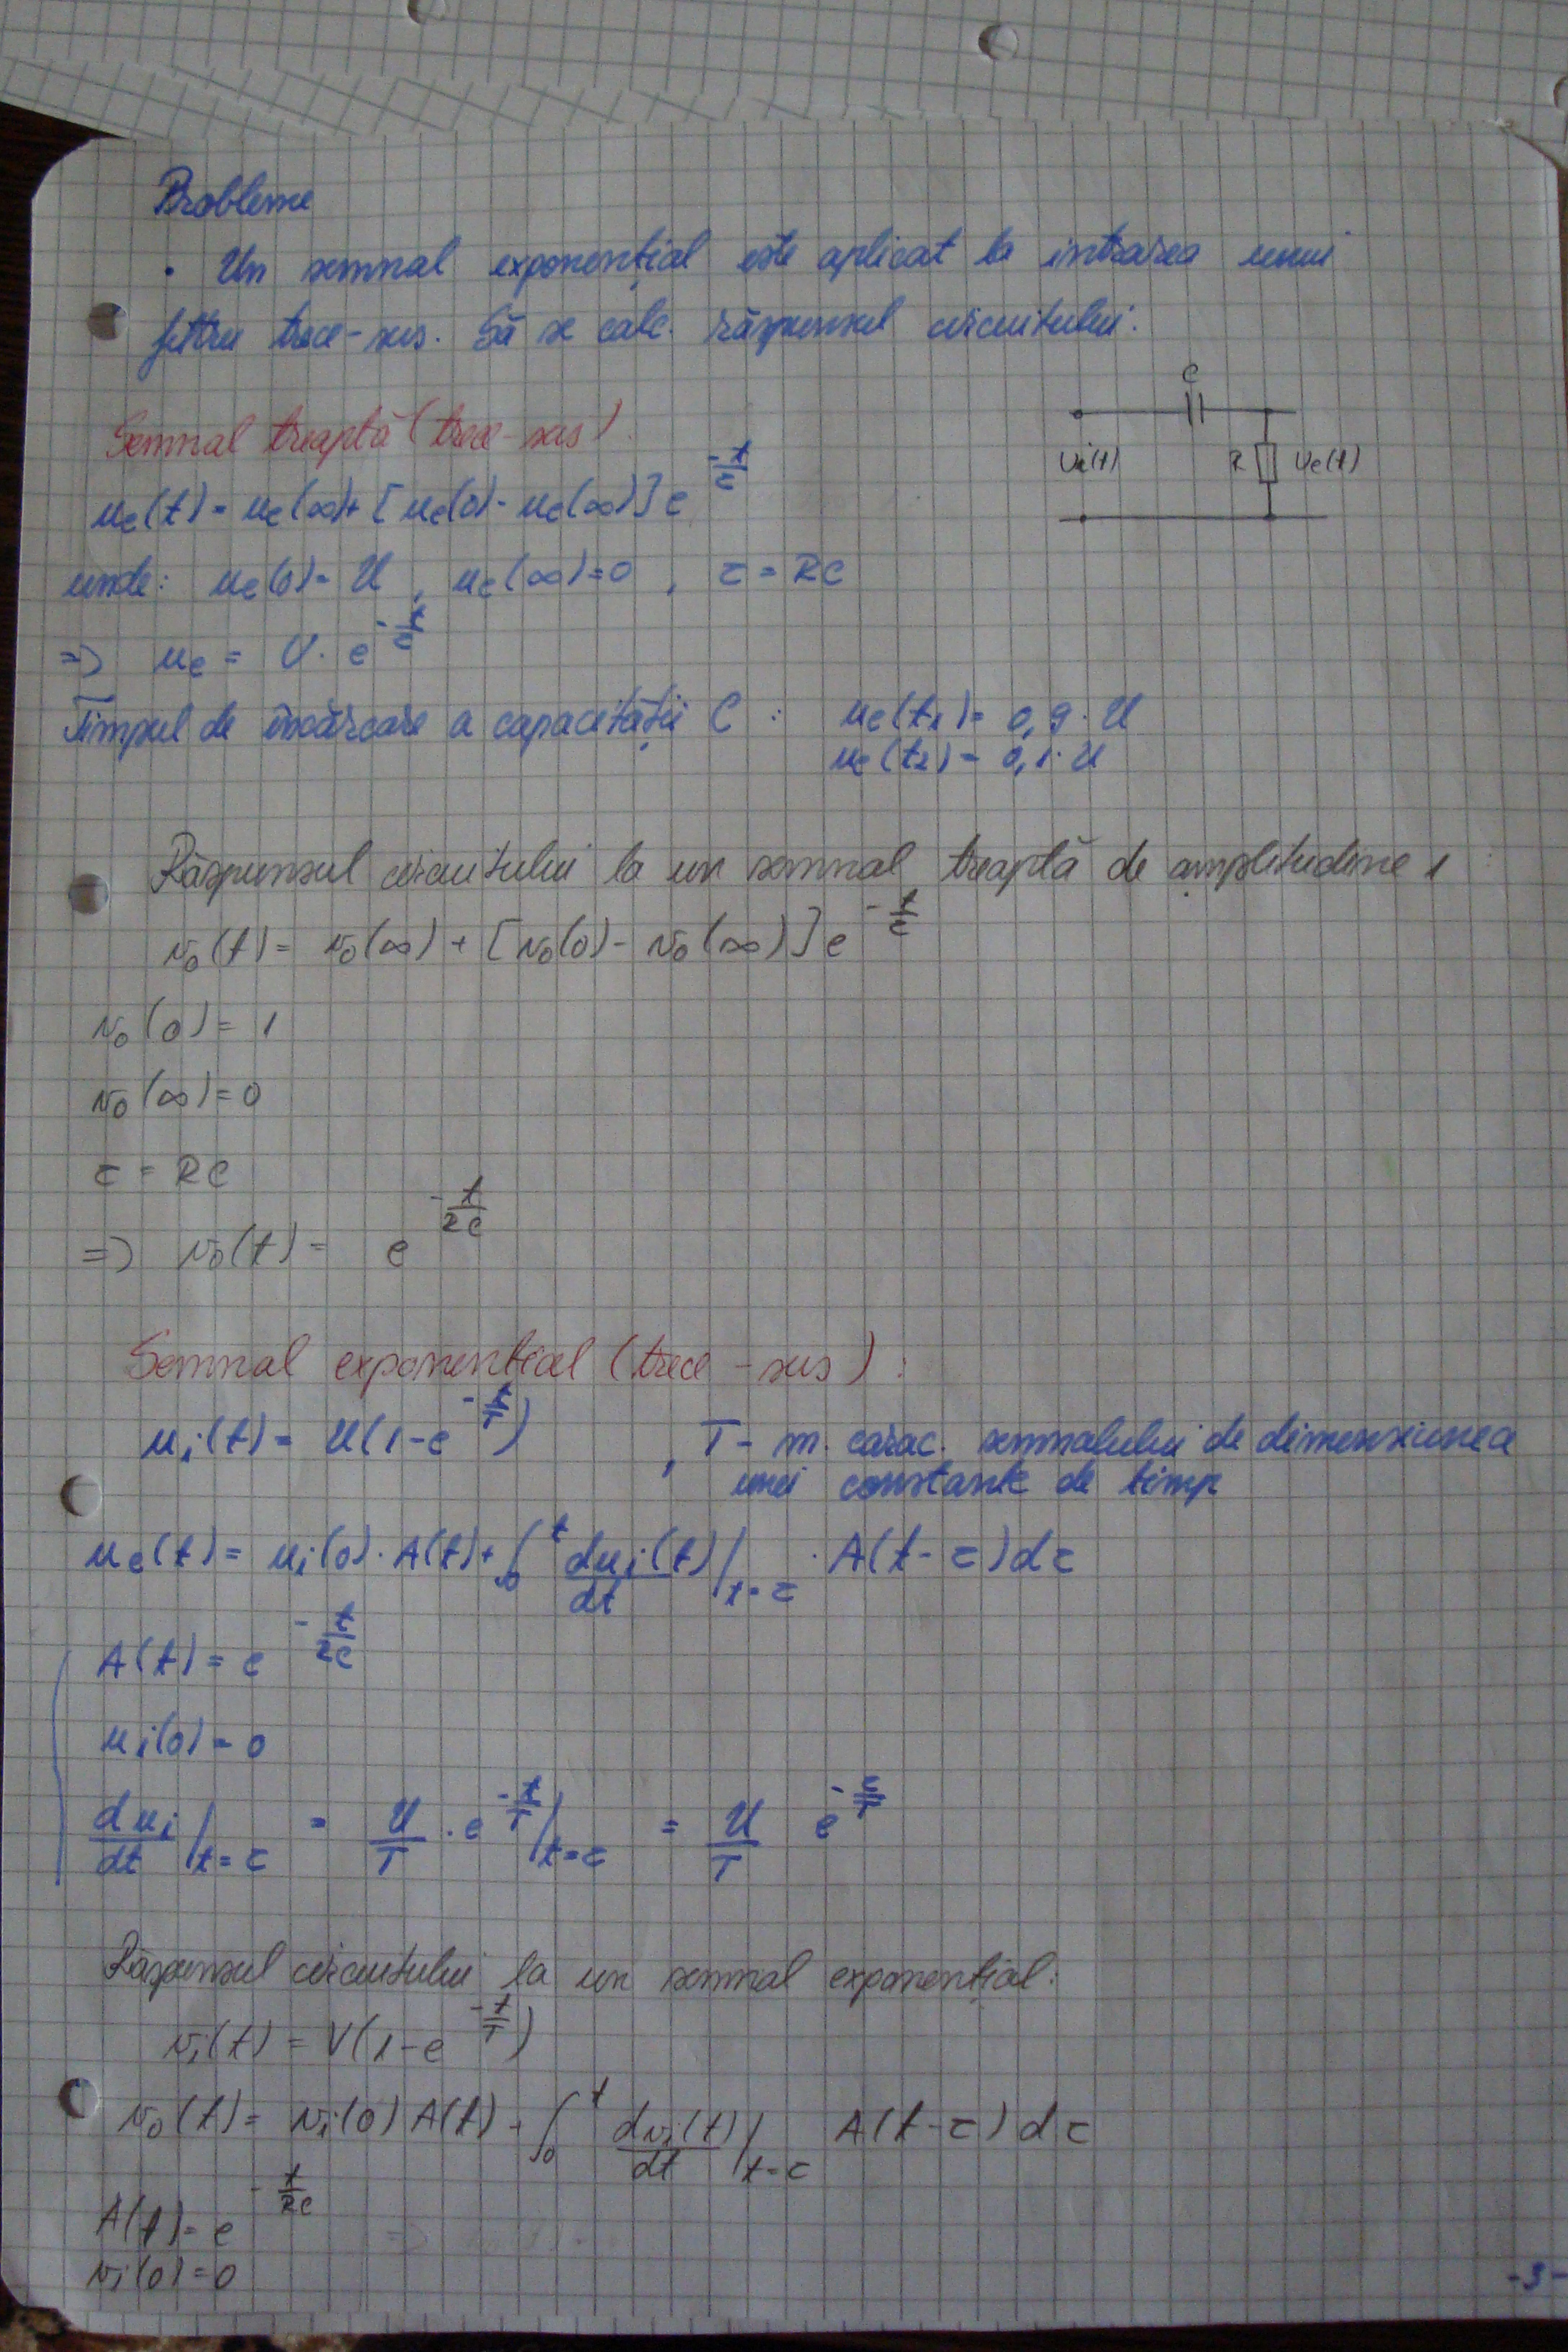 Probleme
• Un semnal exponențial este aplicat la intrarea unui
filtru trece-sus. Să se calc. răspunsul circuitului.
C
Semnal treaptă (trece-sus)
Ui(t) R Ue(t)
ue(t) = ue(∞) + [ue(0) - ue(∞)] e^(-t/τ)
unde: ue(0) = U, ue(∞) = 0, τ = RC
=> ue = U · e^(-t/τ)
Timpul de încărcare a capacității C: ue(t1) = 0,9·U
ue(t2) = 0,1·U
Răspunsul circuitului la un semnal treaptă de amplitudine 1:
v0(t) = v0(∞) + [v0(0) - v0(∞)] e^(-t/τ)
v0(0) = 1
v0(∞) = 0
τ = RC
=> v0(t) = e^(-t/RC)
Semnal exponential (trece-sus):
ui(t) = U(1-e^(-t/T)) , T - m. carac. semnalului de dimensiunea
unei constante de timp
ue(t) = ui(0)·A(t) + ∫_0^t dui(t)/dt |t=τ · A(t-τ)dτ
A(t) = e^(-t/RC)
ui(0) = 0
dui/dt |t=τ = U/T · e^(-t/T) |t=τ = U/T e^(-τ/T)
Răspunsul circuitului la un semnal exponențial:
vi(t) = V(1-e^(-t/T))
v0(t) = vi(0) A(t) + ∫_0^t dvi(t)/dt |t=τ A(t-τ) dτ
A(t) = e^(-t/RC)
vi(0) = 0
-3-